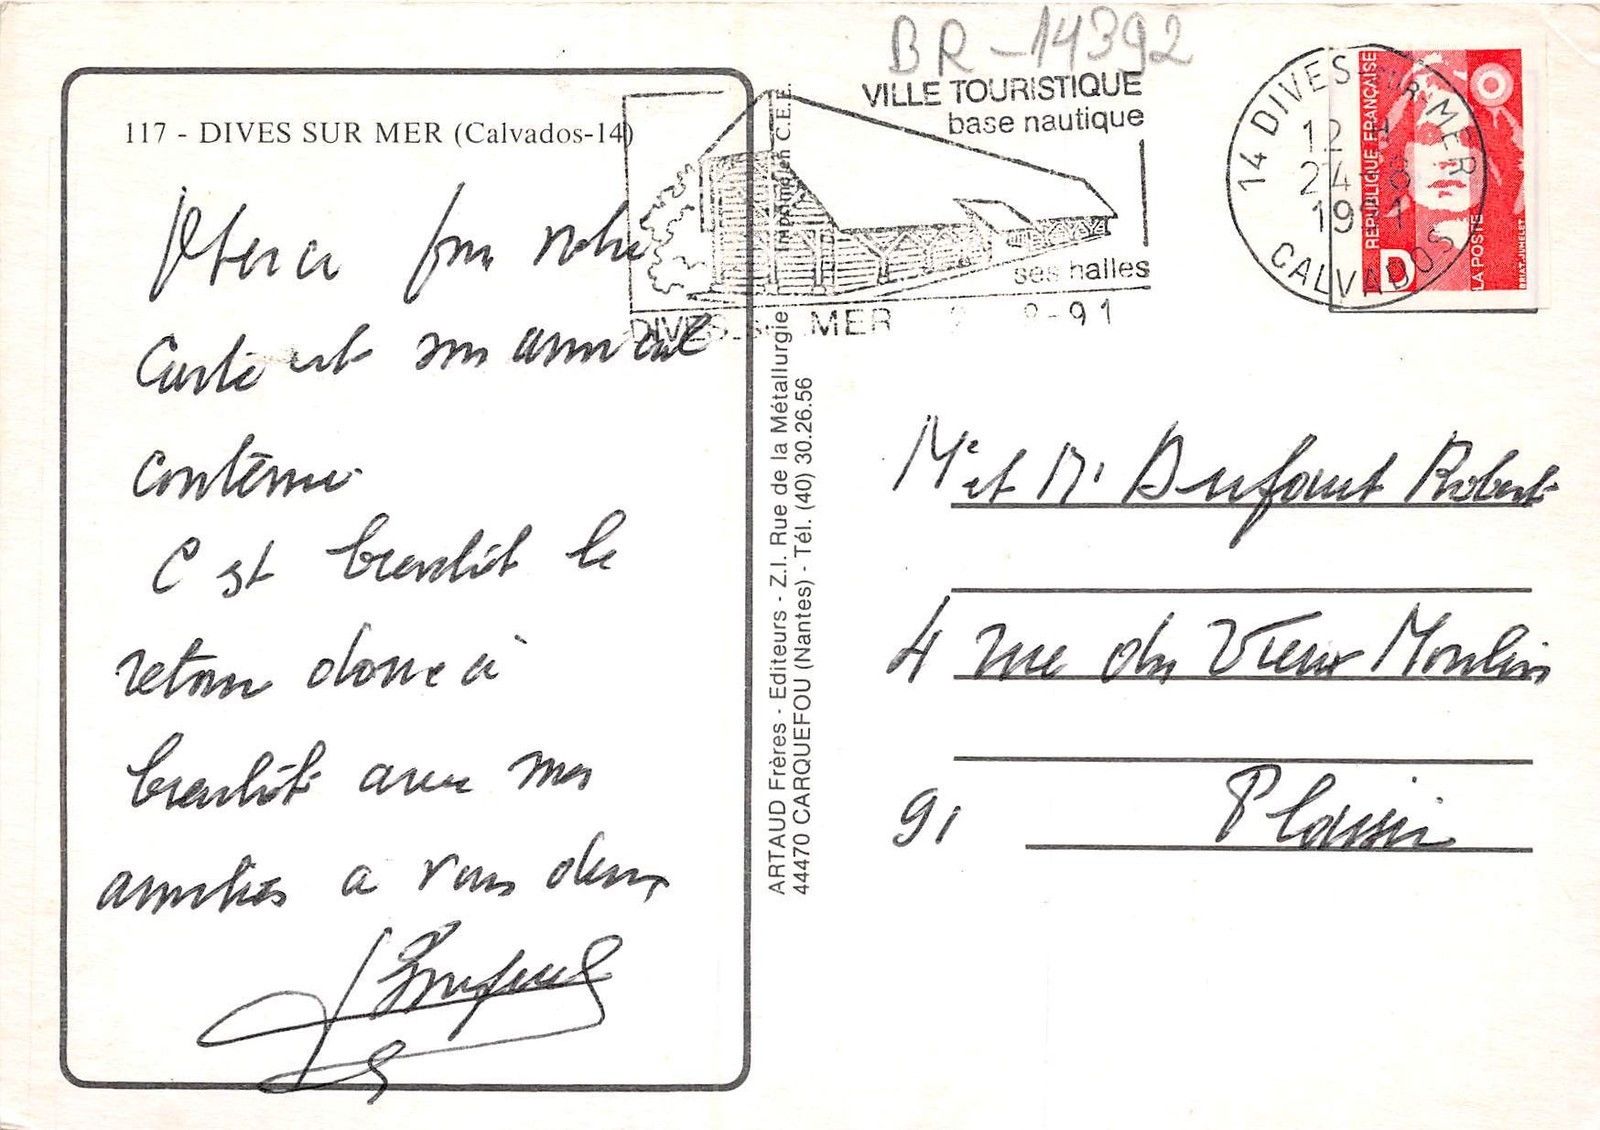 BR-14392
117 - DIVES SUR MER (Calvados-14)
Merci pour votre
Carte et son amical
contenu
C est bientôt le
retour donc à
bientôt avec mes
amitiés a vous deux
VILLE TOURISTIQUE
base nautique
ses halles
DIVES-SUR-MER
-91
14 DIVES-SUR-MER
12 H
24 - 8
1991
CALVADOS
REPUBLIQUE FRANÇAISE
D
LA POSTE
BRIAT.JUMELET
Imprimé en C.E.E.
ARTAUD Frères - Editeurs - Z.I. Rue de la Métallurgie
44470 CARQUEFOU (Nantes) - Tél. (40) 30.26.56
Mr et M Robert
4 rue du Vieux Moulin
91 Plaisir